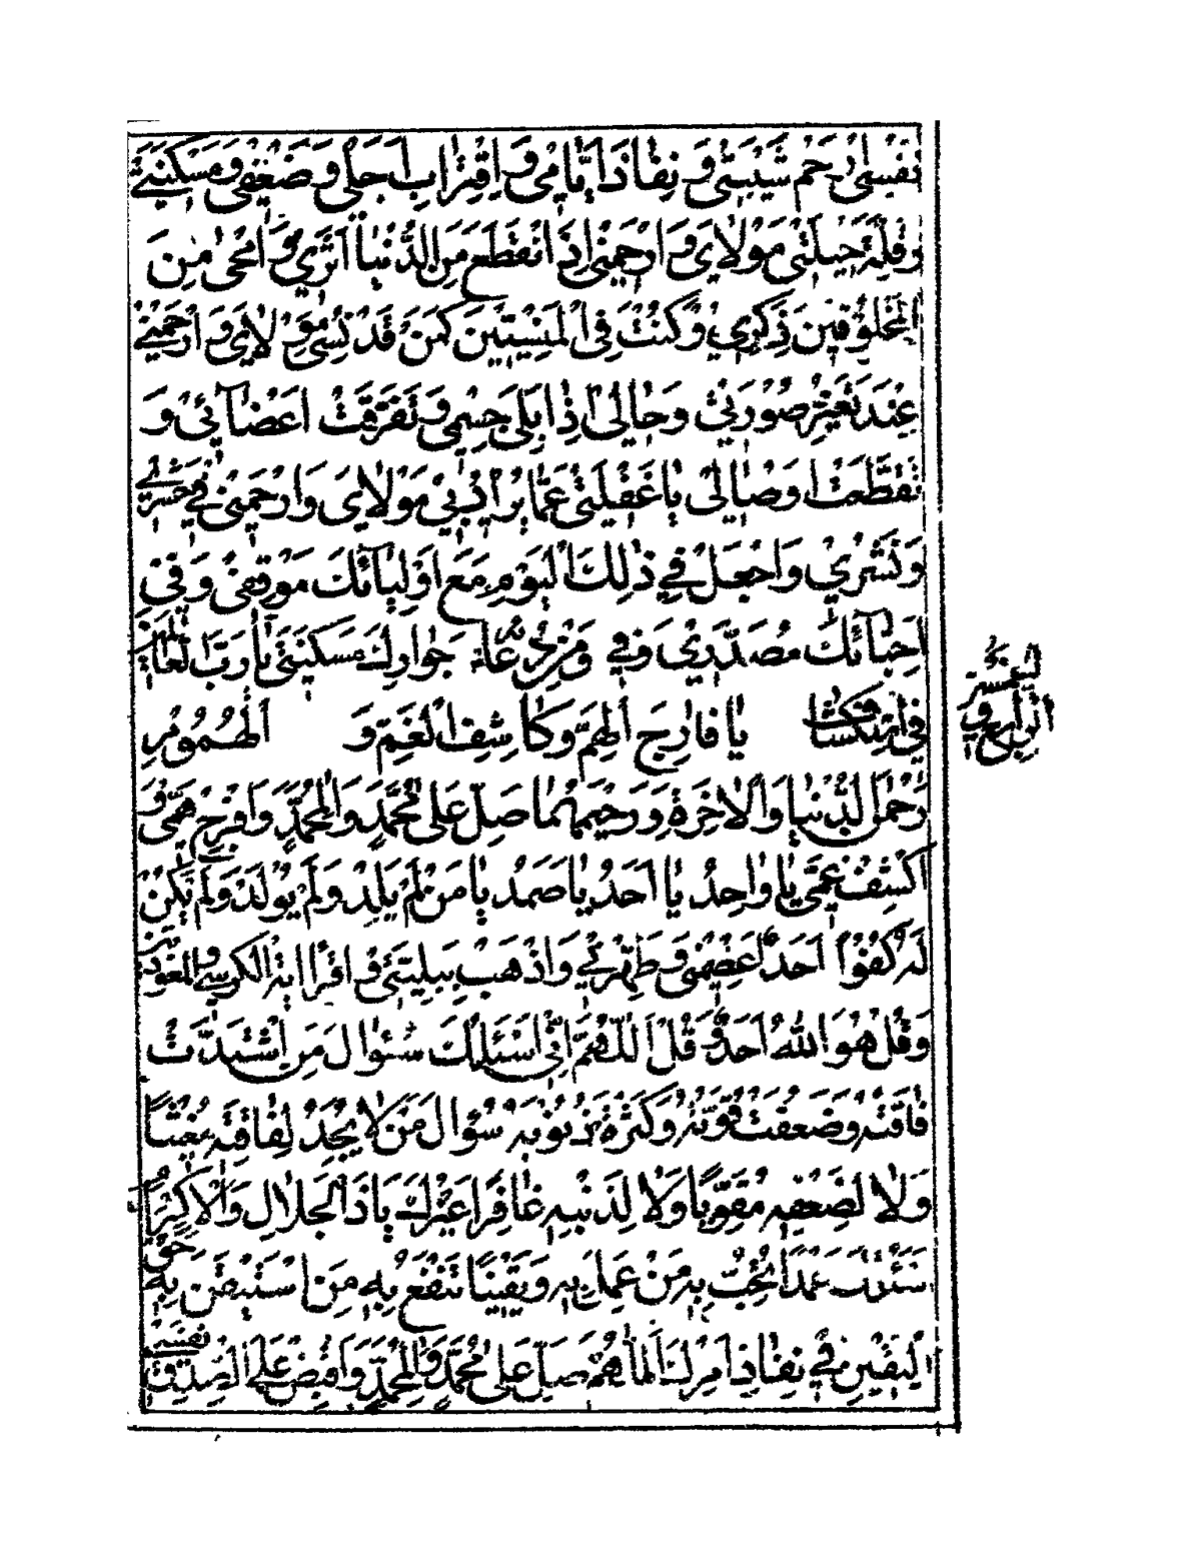 نَفْسی اِرْحَمْ شَیْبَتی وَ نِفاذَ اَیّامی وَ اِقْتِرابَ اَجَلی وَ ضَعْفی وَ مَسْکَنَتی
وَ قِلَّةَ حیلَتی مَوْلایَ وَ ارْحَمْنی اِذَا انْقَطَعَ مِنَ الدُّنْیا اَثَری وَ امَّحٰی مِنَ
الْمَخْلُوقینَ ذِکْری وَ کُنْتُ فِی الْمَنْسِیّینَ کَمَنْ قَدْ نُسِیَ مَوْلایَ وَ ارْحَمْنی
عِنْدَ تَغَیُّرِ صُورَتی وَ حالی اِذا بَلِیَ جِسْمی وَ تَفَرَّقَتْ اَعْضآئی وَ
تَقَطَّعَتْ اَوْصالی یا غَفْلَتی عَمّا یُرادُ بی مَوْلایَ وَ ارْحَمْنی فی حَشْری
وَ نَشْری وَ اجْعَلْ فی ذٰلِکَ الْیَوْمِ مَعَ اَوْلِیآئِکَ مَوْقِفی وَ فی
اَحِبّآئِکَ مَصْدَری وَ فی جِوارِکَ مَسْکَنی یا رَبَّ الْعالَمینَ وَ مِنْ دُعآءِ
فی یا فارِجَ الْهَمِّ وَ کاشِفَ الْغَمِّ وَ الْهُمُومِ
رَحْمٰنَ الدُّنْیا وَ الْاٰخِرَةِ وَ رَحیمَهُما صَلِّ عَلٰی مُحَمَّدٍ وَ الِ مُحَمَّدٍ وَ افْرُجْ هَمّی وَ
اکْشِفْ غَمّی یا واحِدُ یا اَحَدُ یا صَمَدُ یا مَنْ لَمْ یَلِدْ وَ لَمْ یُولَدْ وَ لَمْ یَکُنْ
لَهُ کُفُوًا اَحَدٌ اعْصِمْنی وَ طَهِّرْنی وَ اذْهَبْ بِبَلِیَّتی وَ اقْرَأْ ایَةَ الْکُرْسی وَ الْمُعَوِّذَتَیْنِ
وَ قُلْ هُوَ اللّٰهُ اَحَدٌ وَ قُلْ اَللّٰهُمَّ اِنّی اَسْئَلُکَ سُؤالَ مَنِ اشْتَدَّتْ
فاقَتُهُ وَ ضَعُفَتْ قُوَّتُهُ وَ کَثُرَتْ ذُنُوبُهُ سُؤالَ مَنْ لا یَجِدُ لِفاقَتِهِ مُغیثًا
وَ لا لِضَعْفِهِ مُقَوِّیًا وَ لا لِذَنْبِهِ غافِرًا غَیْرَکَ یا ذَا الْجَلالِ وَ الْاِکْرامِ
عَمَلًا تُحِبُّ بِهِ مَنْ عَمِلَ بِهِ وَ یَقینًا تَنْفَعُ بِهِ مَنِ اسْتَیْقَنَ بِهِ حَقَّ
الْیَقینِ فی نِفاذِ اَمْرِکَ اَللّٰهُمَّ صَلِّ عَلٰی مُحَمَّدٍ وَ الِ مُحَمَّدٍ وَ اقْبِضْ عَلَی الصِّدْقِ نَفْسی